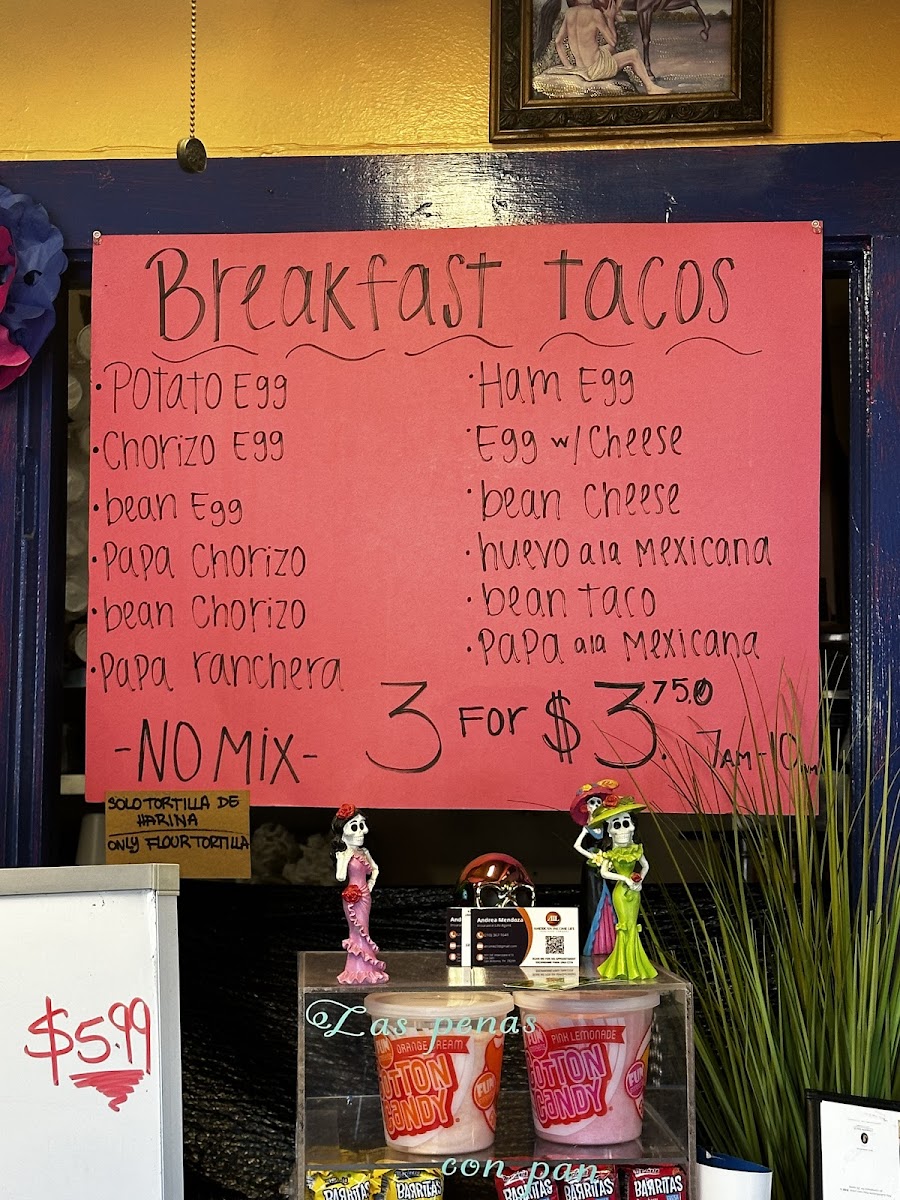 Breakfast tacos
•Potato Egg
•Chorizo Egg
•bean Egg
•Papa Chorizo
•bean Chorizo
•Papa ranchera
•Ham Egg
•Egg w/Cheese
•bean Cheese
•huevo ala Mexicana
•bean taco
•Papa ala Mexicana
-NO Mix-
3 For $3.
7AM-10
SOLO TORTILLA DE
HARINA
ONLY FLOUR TORTILLA
$5.99
Andrea Mendoza
Las penas
con pan
ORANGE CREAM
COTTON
CANDY
FUN
PINK LEMONADE
COTTON
CANDY
FUN
BARRITAS
BARRITAS
BARRITAS
BARRITAS